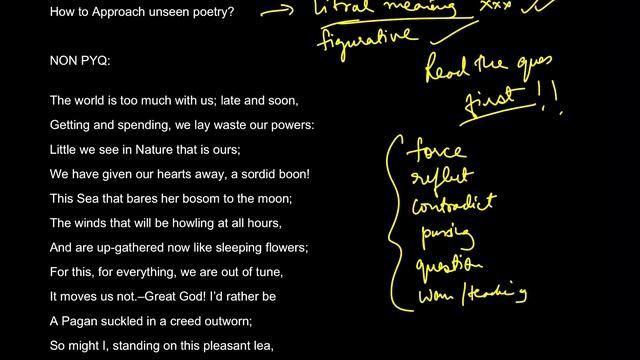 How to Approach unseen poetry?
litral meaning xxx
figurative
Read the ques
first !!
NON PYQ:
The world is too much with us; late and soon,
Getting and spending, we lay waste our powers:
Little we see in Nature that is ours;
We have given our hearts away, a sordid boon!
This Sea that bares her bosom to the moon;
The winds that will be howling at all hours,
And are up-gathered now like sleeping flowers;
For this, for everything, we are out of tune,
It moves us not.–Great God! I’d rather be
A Pagan suckled in a creed outworn;
So might I, standing on this pleasant lea,
force
reflect
contradict
question
warn/teaching